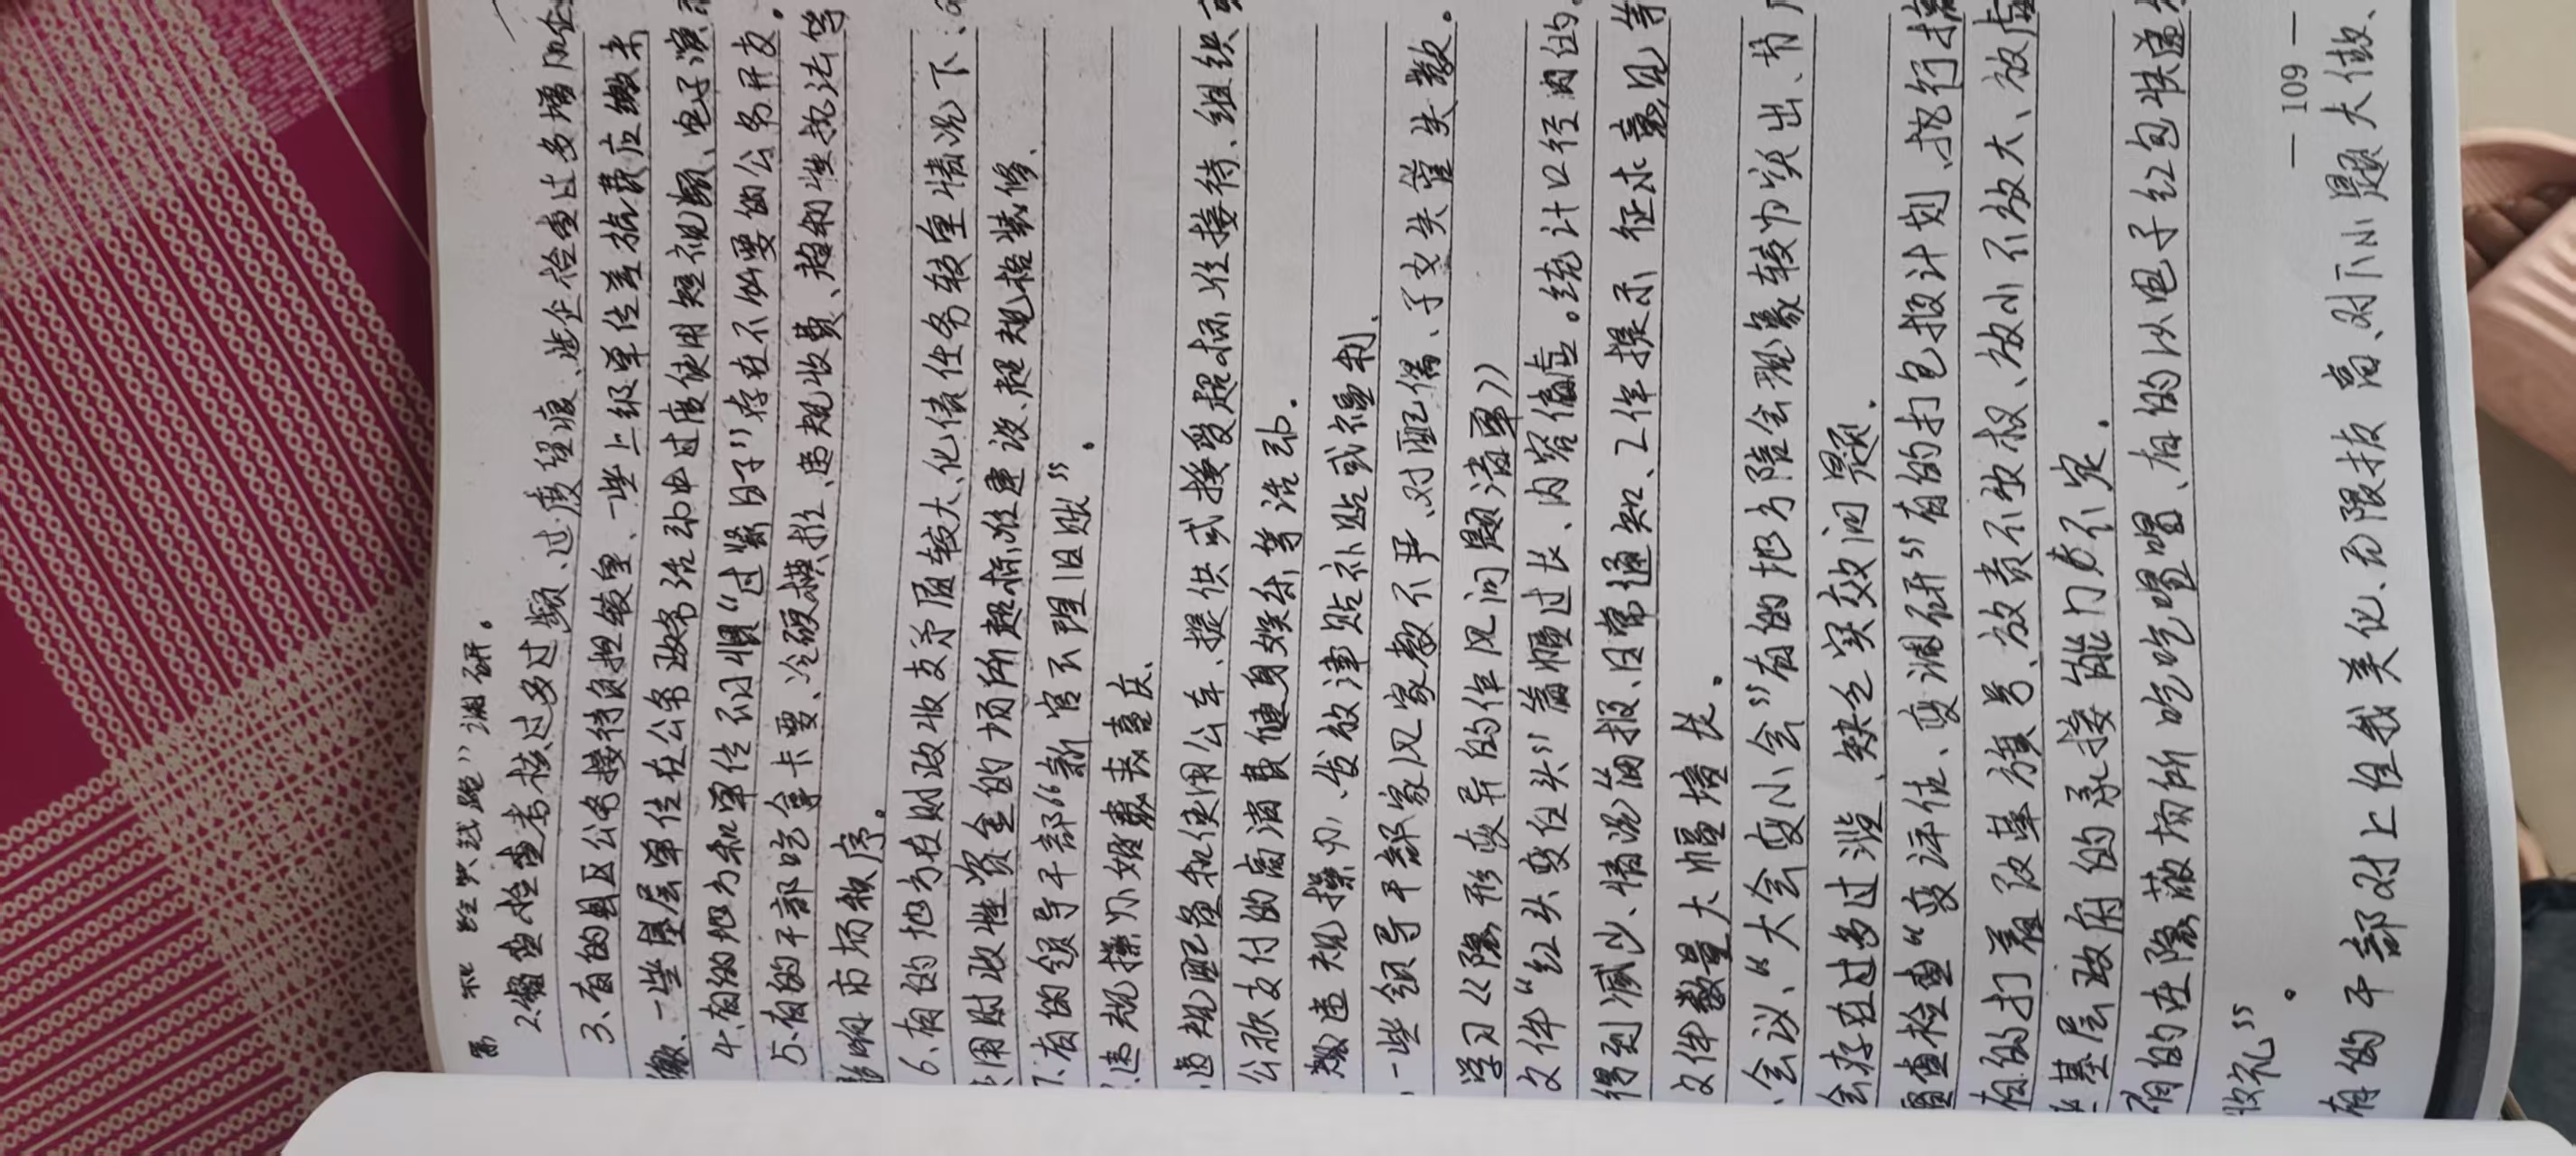 和“经典线路”调研。
2.督查检查考核过多过频、过度留痕、涉企检查过多增加企
3、有的县区公务接待负担较重、一些上级单位差旅费应缴未
缴、一些基层单位在公务政务活动中过度使用短视频、电子演示
4、有的地方和单位不习惯“过紧日子”存在不必要的公务开支。
5、有的干部吃拿卡要、冷硬横推、违规收费、趋利性执法等
影响市场秩序。
6、有的地方在财政收支矛盾较大、化债任务较重情况下、
用财政性资金的场所超标准建设、超规格装修、
7、有的领导干部“新官不理旧账”。
违规操办婚丧喜庆、
违规配备和使用公车、提供或接受超标准接待、组织
公款支付的高消费健身娱乐等活动。
违规操办、发放津贴补贴或福利、
一些领导干部家风家教不严、对配偶、子女失管失教。
学习《隐形变异的作风问题清单》
文件“红头变白头”篇幅过长、内容偏虚。统计口径内的
得到减少、情况简报、日常通知、工作提示、征求意见等
文件数量大幅增长。
会议、“大会变小会”有的地方陪会现象较为突出、书
会存在过多过滥、缺乏实效问题。
督查检查“变评估、变调研”有的打包报计划、执行搞
有的打着改革旗号、放责不放权、放小不放大、放虚
基层政府的承接能力不足。
有的在隐蔽场所吃吃喝喝、有的以电子红包快递
收礼”。
有的干部对上自我美化、无限拔高、对下小题大做、
— 109 —